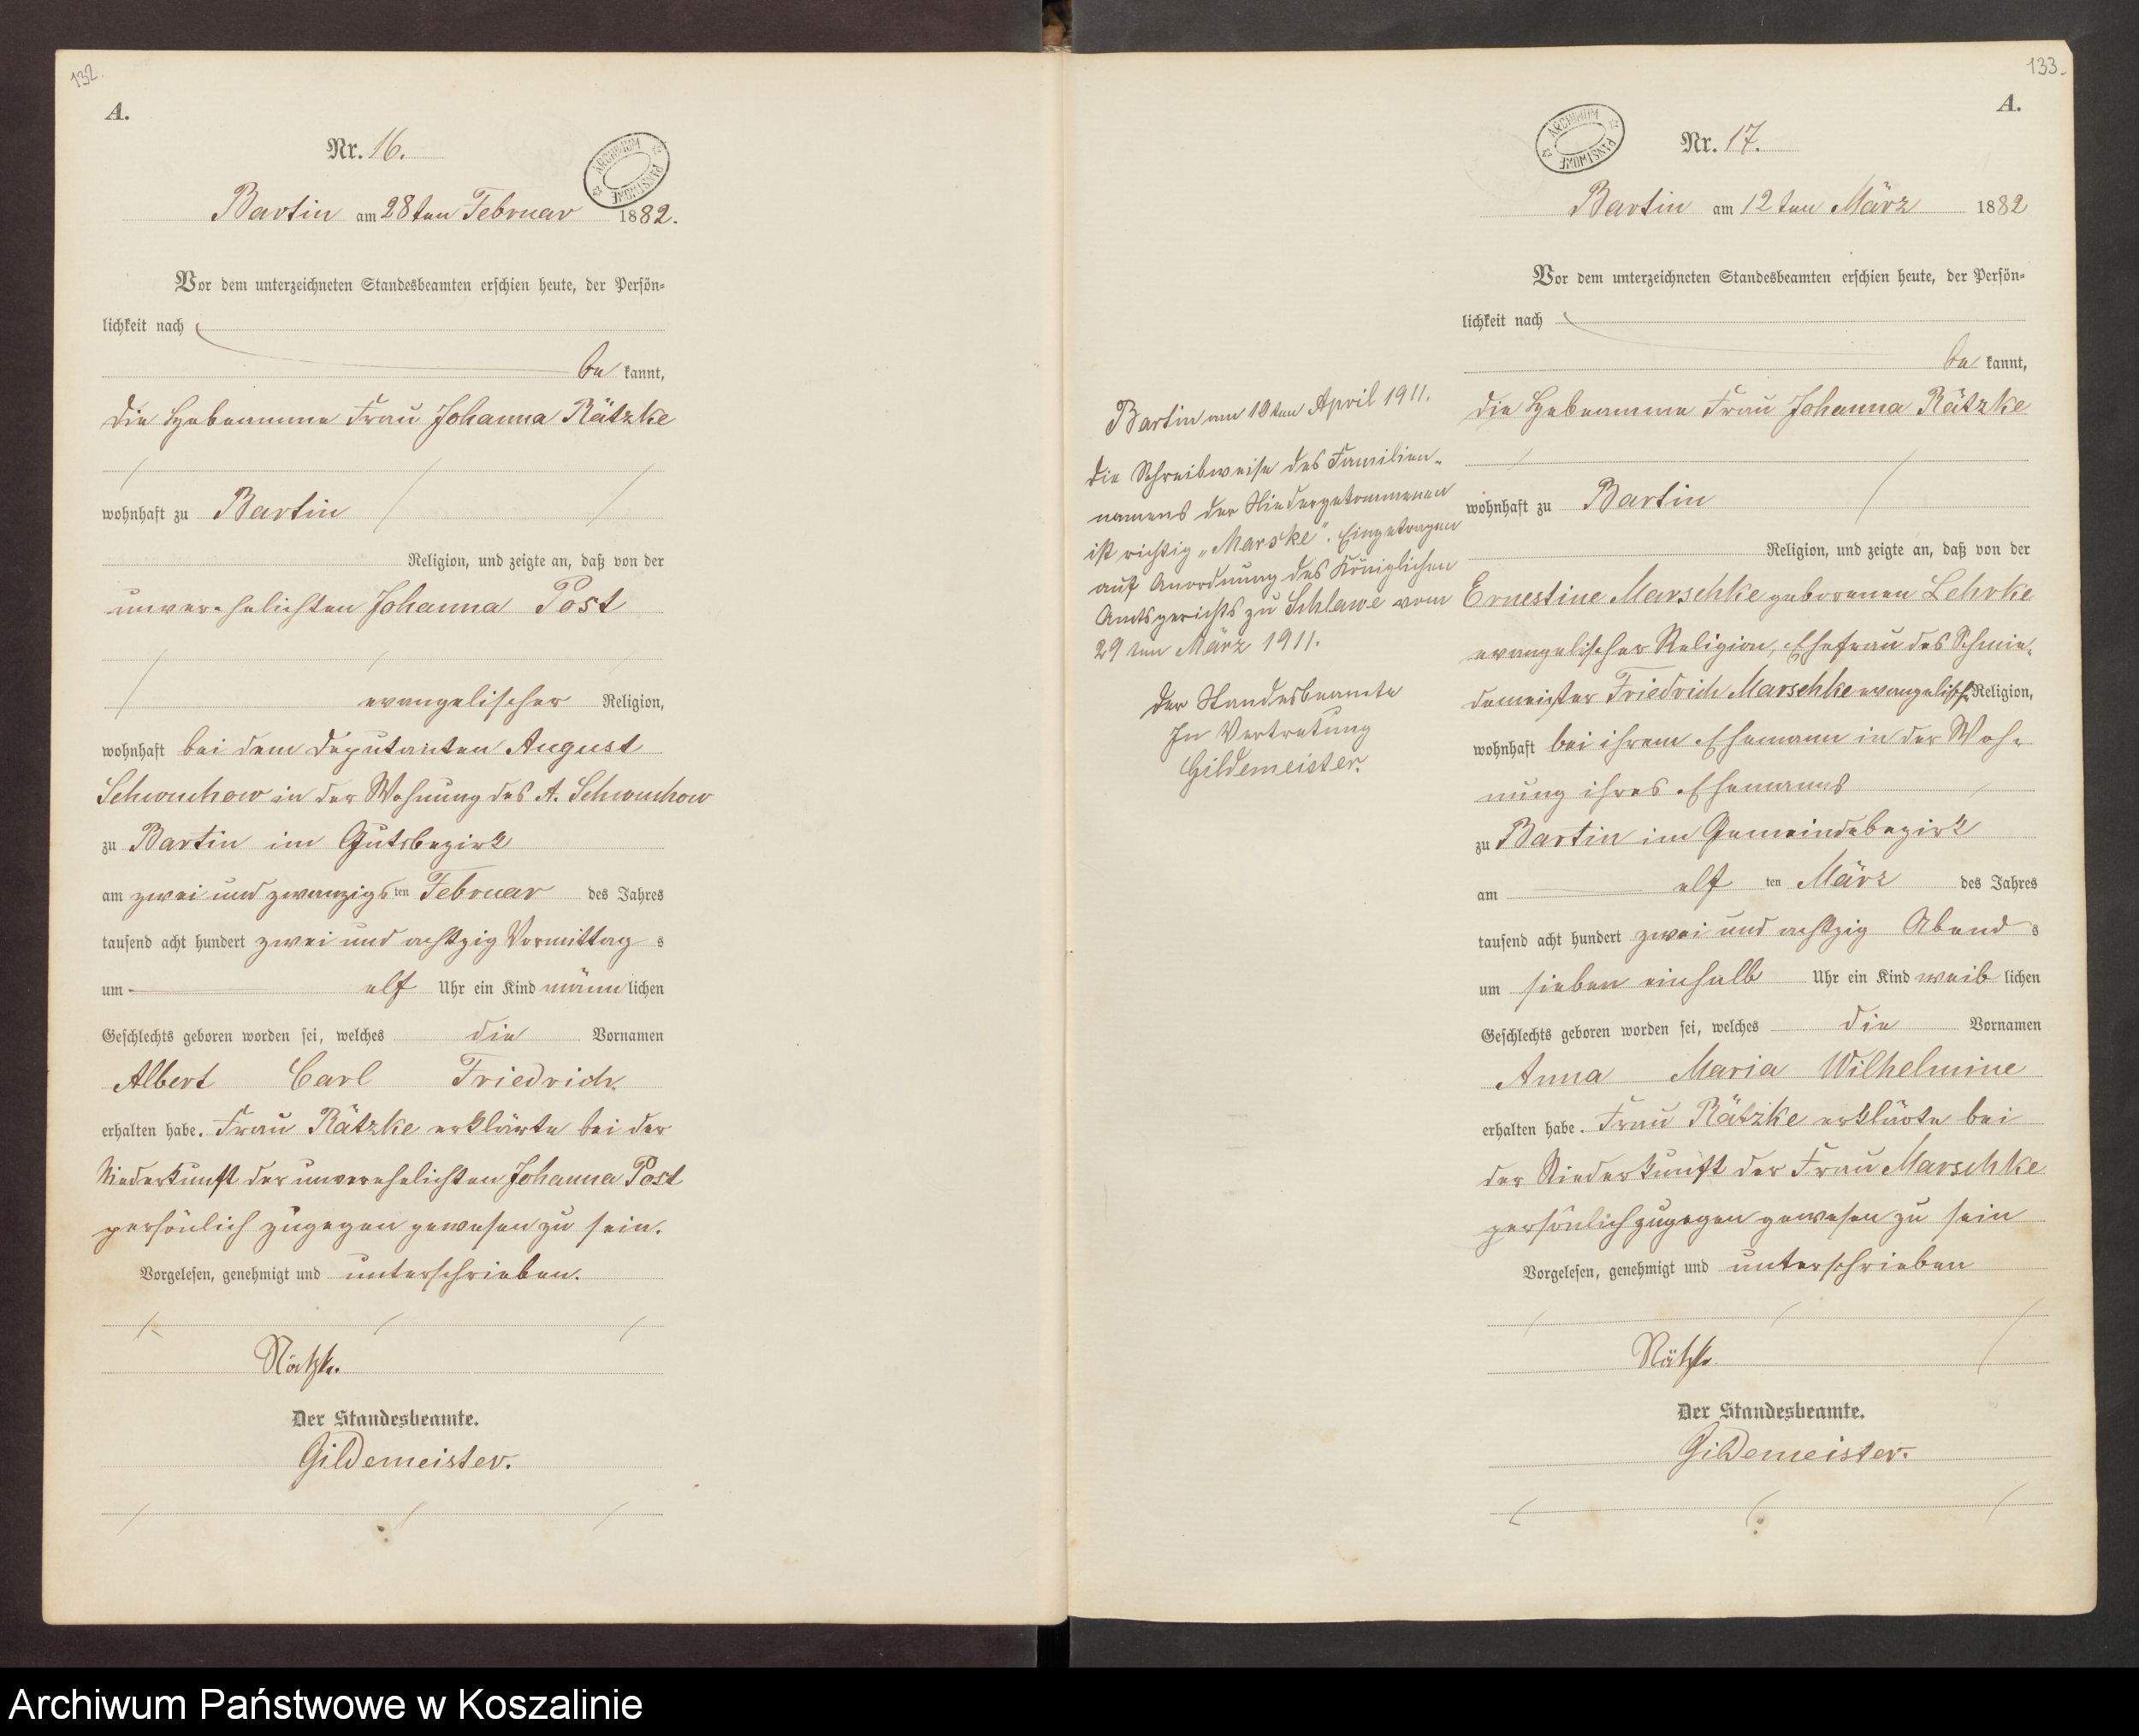 132.
A.
Nr. 16.
ARCHIWUM PAŃSTWOWE
Bartin am 28ten Februar 1882.
Vor dem unterzeichneten Standesbeamten erschien heute, der Persön-
lichkeit nach
be kannt,
die Hebeamme Frau Johanna Rätzke
wohnhaft zu Bartin
Religion, und zeigte an, daß von der
unverehelichten Johanna Post
evangelischer Religion,
wohnhaft bei dem Deputanten August
Schwuchow in der Wohnung des A. Schwuchow
zu Bartin im Gutsbezirk
am zwei und zwanzigs ten Februar des Jahres
tausend acht hundert zwei und achtzig Vormittag s
um elf Uhr ein Kind männ lichen
Geschlechts geboren worden sei, welches die Vornamen
Albert Carl Friedrich
erhalten habe. Frau Rätzke erklärte bei der
Niederkunft der unverehelichten Johanna Post
persönlich zugegen gewesen zu sein.
Vorgelesen, genehmigt und unterschrieben.
Rätzke.
Der Standesbeamte.
Gildemeister.
133.
A.
ARCHIWUM PAŃSTWOWE
Nr. 17.
Bartin am 12ten März 1882
Vor dem unterzeichneten Standesbeamten erschien heute, der Persön-
lichkeit nach
be kannt,
die Hebeamme Frau Johanna Rätzke
wohnhaft zu Bartin
Religion, und zeigte an, daß von der
Ernestine Marschke geborenen Lehrke
evangelischer Religion, Ehefrau des Schmie-
demeister Friedrich Marschke evangelisch. Religion,
wohnhaft bei ihrem Ehemann in der Woh-
nung ihres Ehemanns
zu Bartin im Gemeindebezirk
am elf ten März des Jahres
tausend acht hundert zwei und achtzig Abend s
um sieben einhalb Uhr ein Kind weib lichen
Geschlechts geboren worden sei, welches die Vornamen
Anna Maria Wilhelmine
erhalten habe. Frau Rätzke erklärte bei
der Niederkunft der Frau Marschke
persönlich zugegen gewesen zu sein
Vorgelesen, genehmigt und unterschrieben
Rätzke
Der Standesbeamte.
Gildemeister.
Bartin am 10ten April 1911.
Die Schreibweise des Familien-
namens der Niedergekommenen
ist richtig „Marske". Eingetragen
auf Anordnung des Königlichen
Amtsgerichts zu Schlawe vom
29ten März 1911.
Der Standesbeamte
In Vertretung
Gildemeister.
Archiwum Państwowe w Koszalinie